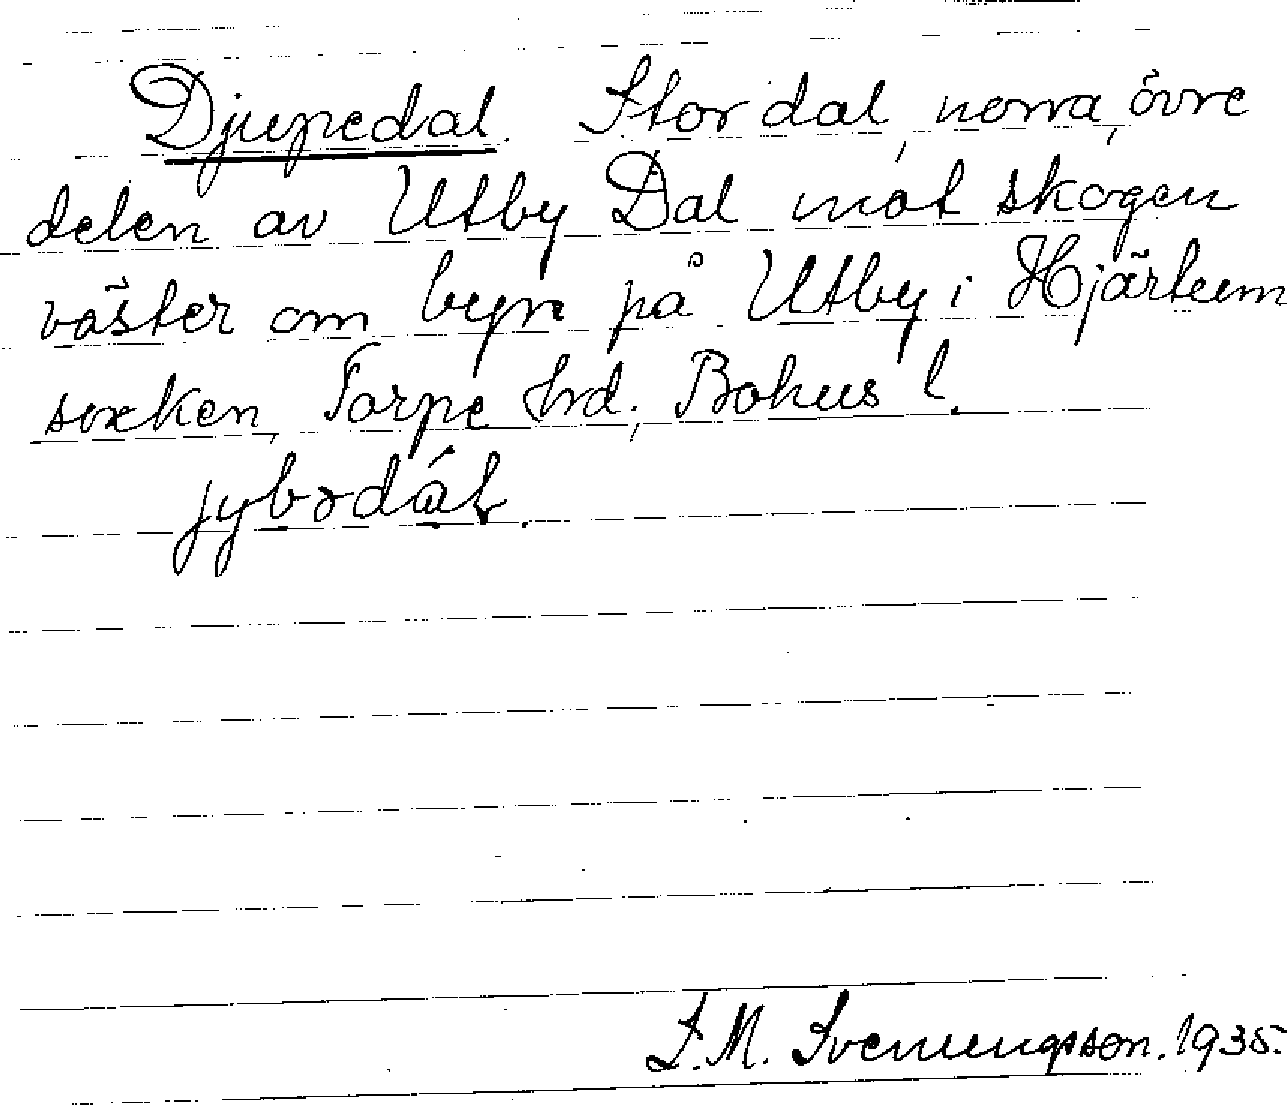 Djupedal. Stor dal, norra, övre
delen av Utby Dal mot skogen
väster om byn på Utby i Hjärtum
socken, Torpe hrd; Bohus l.
S. M. Svenungsson. 1935.